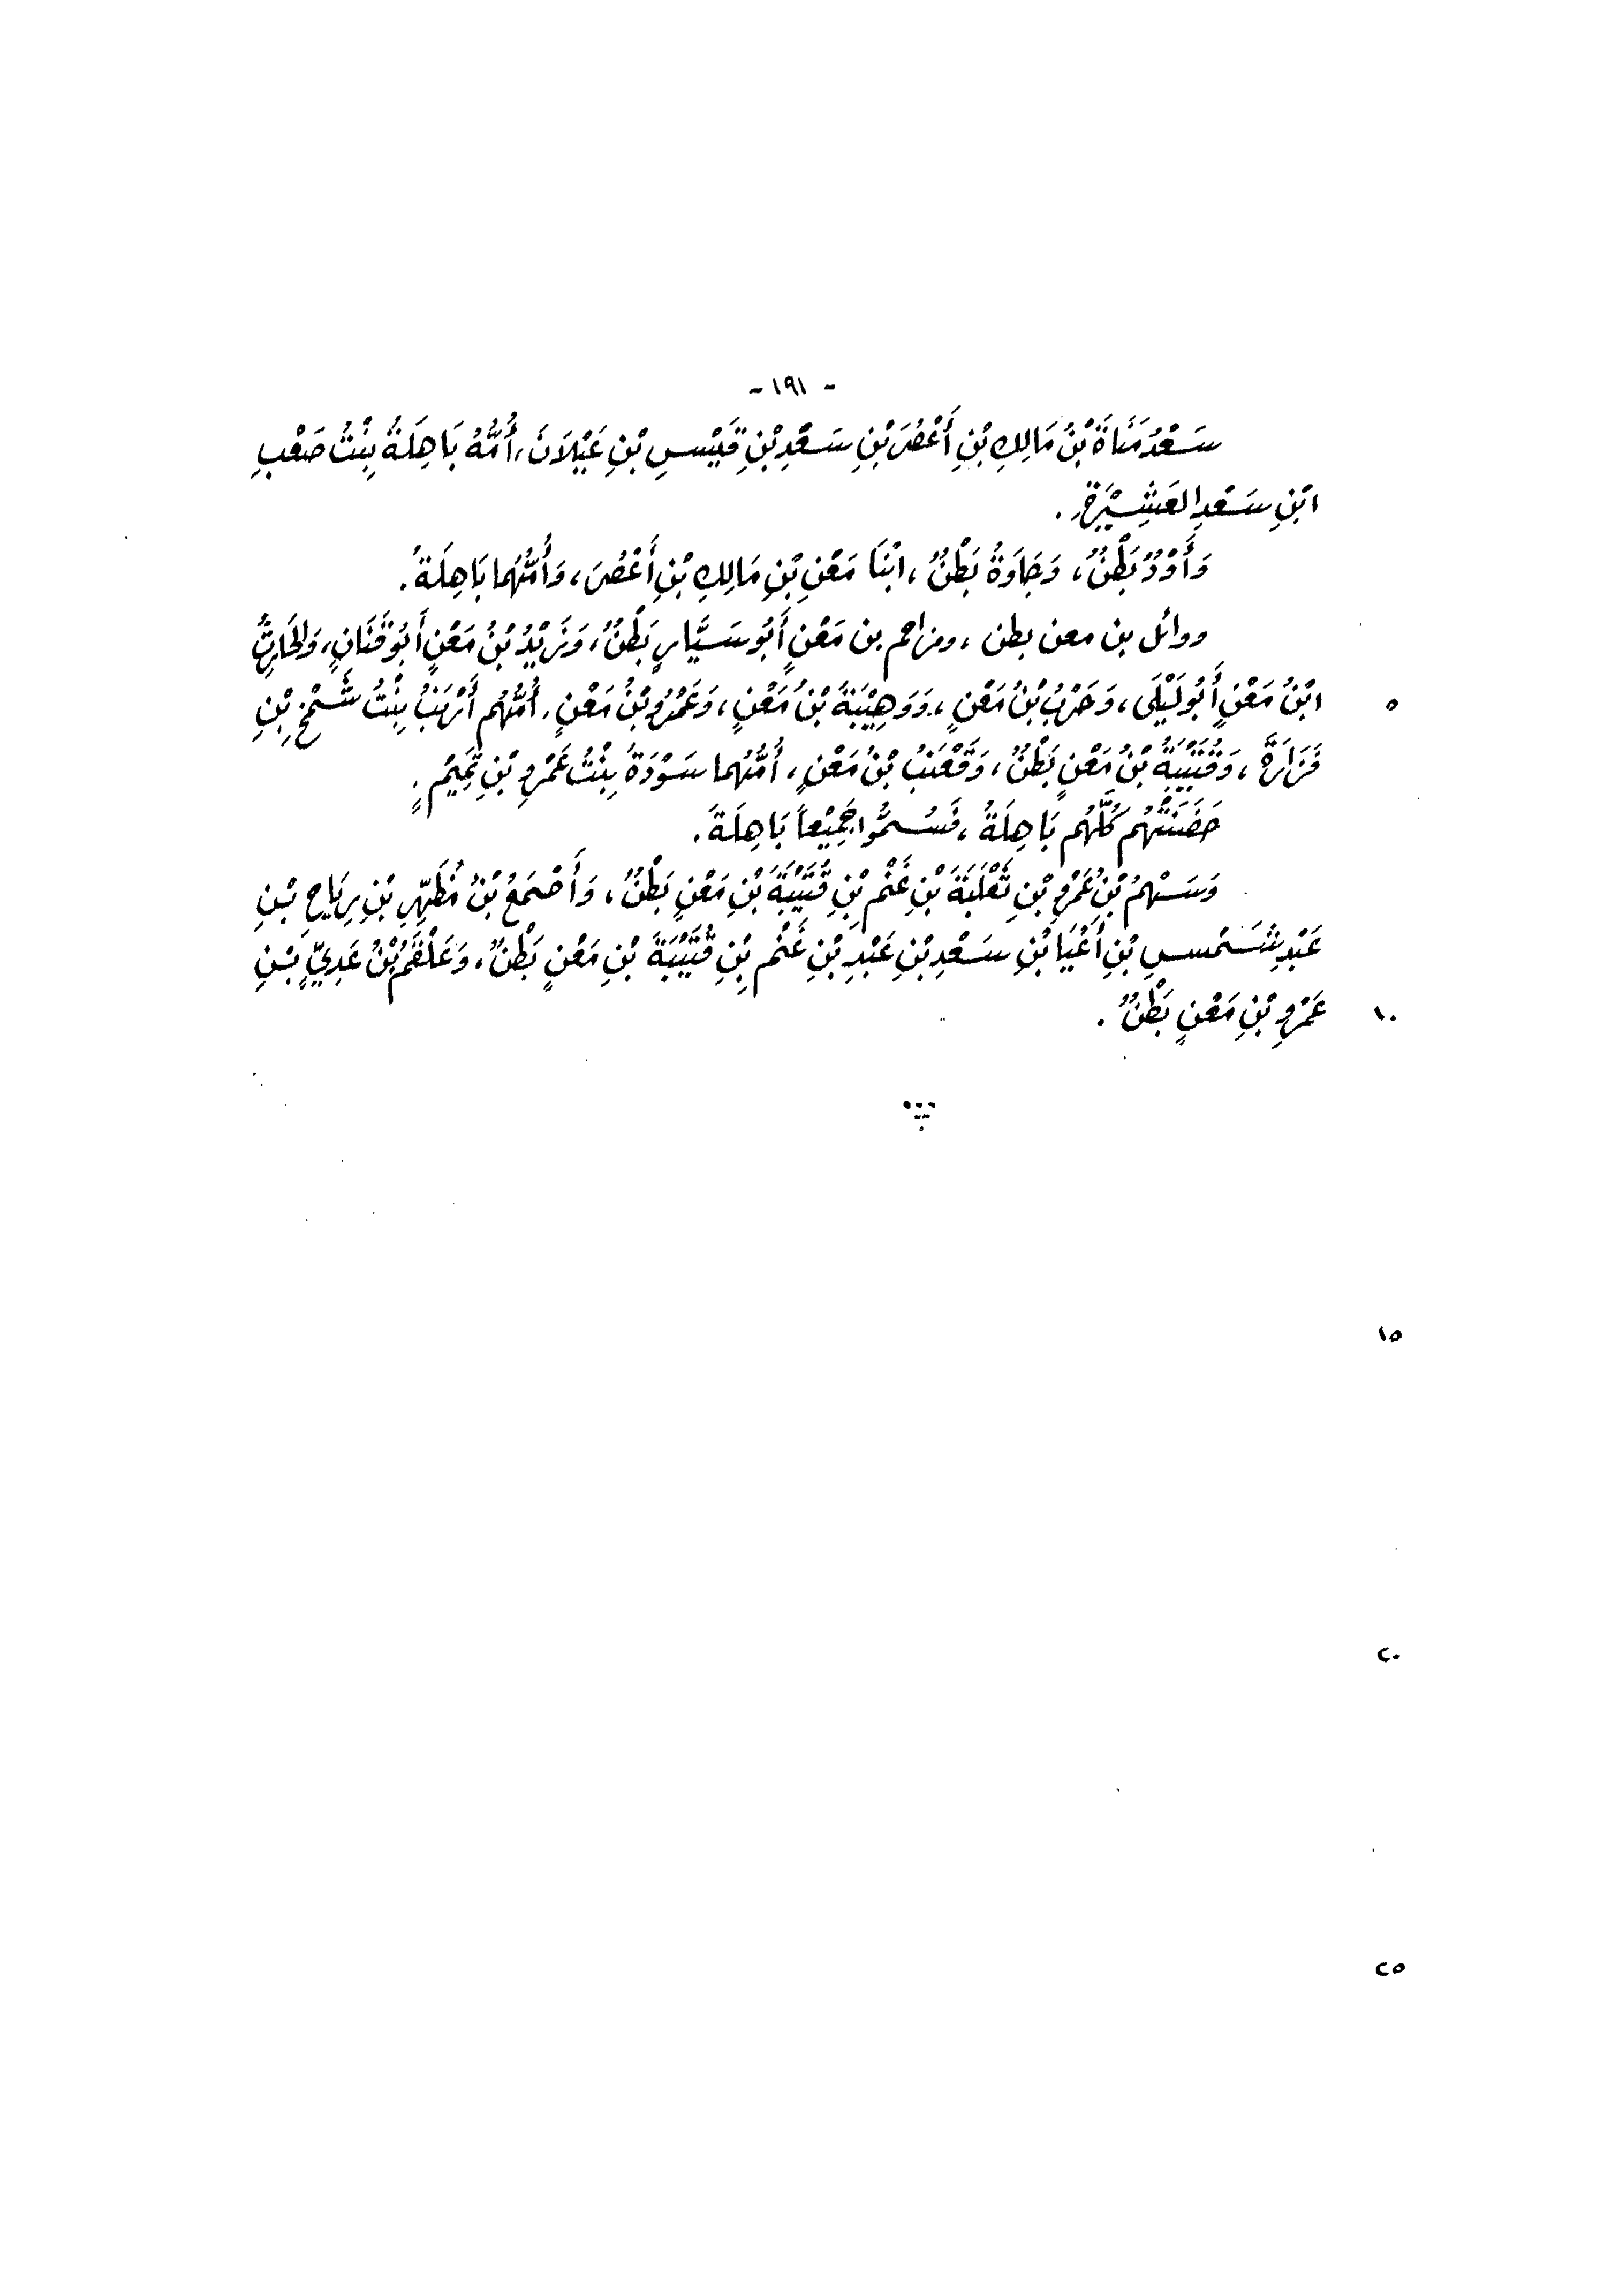 - ١٩١ -
سَعْدُ مَنَاةَ بْنُ مَالِكِ بْنِ أَعْصُرَ بْنِ سَعْدِ بْنِ قَيْسِ بْنِ عَيْلَانَ، أُمُّهُ بَاهِلَةُ بِنْتُ صَعْبِ
ابْنِ سَعْدِ العَشِيْرَةِ .
وَأَوْدُ بَطْنٌ، وَجَاوَةُ بَطْنٌ، ابْنَا مَعْنِ بْنِ مَالِكِ بْنِ أَعْصُرَ، وَأُمُّهُما بَاهِلَةُ.
ووائل بن معن بطن ، ومزاحم بن مَعْنٍ أَبُو سَيَّارٍ بَطْنٌ، وَزَيْدُ بْنُ مَعْنٍ أَبُو قَنَانٍ، وَالحَارِثُ
٥ ابْنُ مَعْنٍ أَبُو لَيْلَى، وَحَرْبُ بْنُ مَعْنٍ، وَوَهِيْبَةُ بْنُ مَعْنٍ، وَعَمْرُو بْنُ مَعْنٍ، أُمُّهُم أَرْنَبُ بِنْتُ شَمْخِ بْنِ
فَزَارَةَ، وَقُتَيْبَةُ بْنُ مَعْنٍ بَطْنٌ، وَقَعْنَبُ بْنُ مَعْنٍ، أُمُّهُما سَوْدَةُ بِنْتُ عَمْرِو بْنِ تَمِيْمٍ .
حَضَنَتْهُم كُلَّهُم بَاهِلَةُ، فَسُمُّوا جَمِيْعاً بَاهِلَةَ.
وَسَهْمُ بْنُ عَمْرِو بْنِ ثَعْلَبَةَ بْنِ غَنْمِ بْنِ قُتَيْبَةَ بْنِ مَعْنٍ بَطْنٌ، وَأَصْمَعُ بْنُ مُظَهِّرِ بْنِ رِيَاحِ بْنِ
عَبْدِ شَمْسِ بْنِ أَعْيَا بْنِ سَعْدِ بْنِ عَبْدِ بْنِ غَنْمِ بْنِ قُتَيْبَةَ بْنِ مَعْنٍ بَطْنٌ، وَعَلْقَمُ بْنُ عَدِيِّ بْنِ
١٠ عَمْرِو بْنِ مَعْنٍ بَطْنٌ .
١٥
٢٠
٢٥